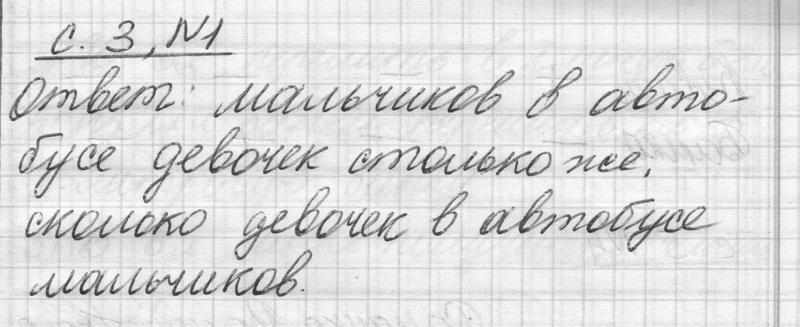 с. 3, №1
Ответ: мальчиков в авто-
бусе девочек столько же,
сколоко девочек в автобусе
мальчиков.